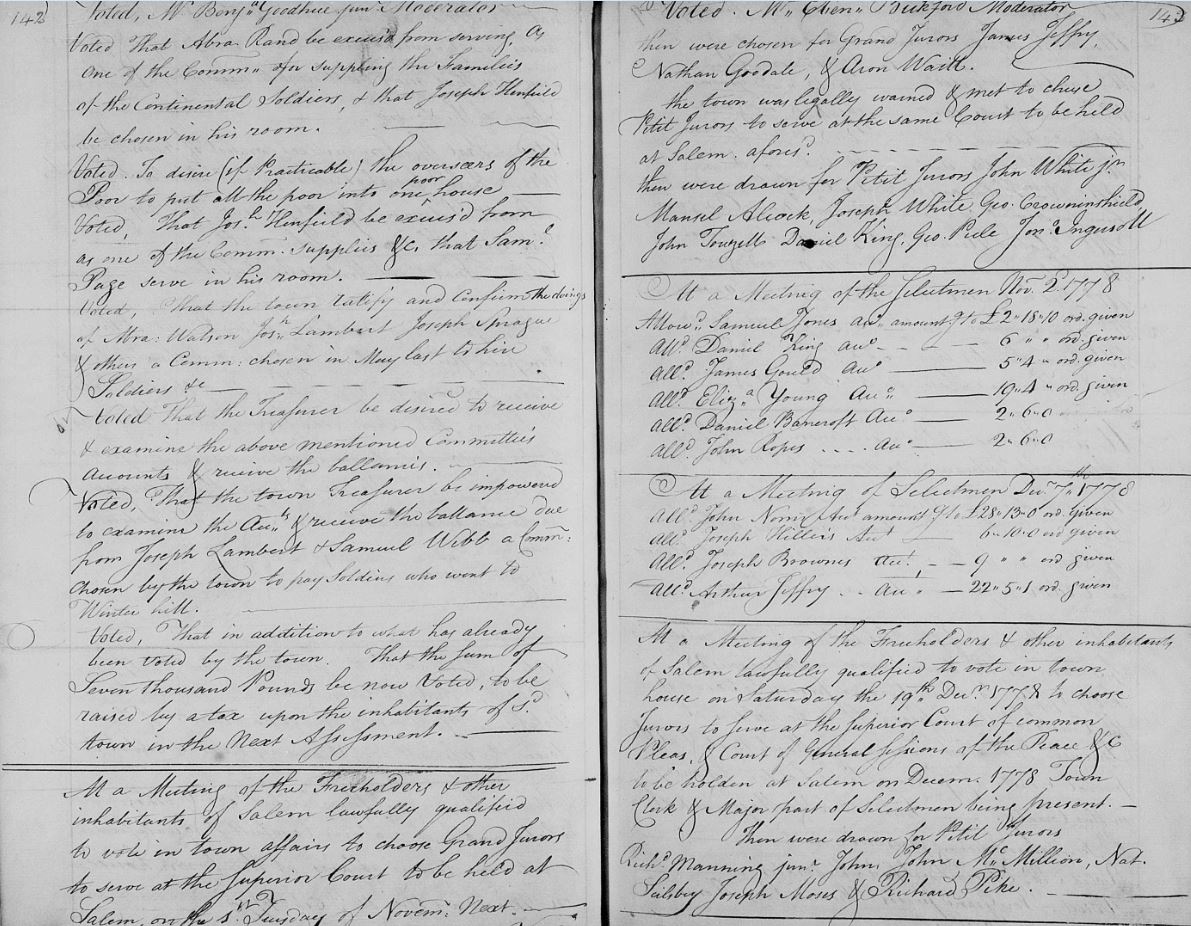 142
Voted, Mr. Benja. Goodhue junr. Moderator
Voted That Abra. Rand be excus'd from serving, As
one of the Comm.. for suppling the Families
of the Continental Soldiers, & that Joseph Henfield
be chosen in his room.
Voted. To desire (if Practicable) the overseers of the
Poor to put all the poor into one poor house
Voted, That Jos.h Henfield be excus'd from
as one of the Comm: supplies &c, that Saml.
Page serve in his room.
Voted, That the town ratify and Confirm the doings
of Abra: Watson Jos.h Lambert Joseph Sprague
& others a Comm: chosen in May last to hire
Soldiers &c
Voted That the Treasurer be desired to receive
& examine the above mentioned Committee's
Accounts & receive the ballances.
Voted, That the town Treasurer be impowered
to examine the Au.ts & receive the ballance due
from Joseph Lambert & Samuel Webb a Comm:
chosen by the town to pay Soldiers who went to
Winter hill.
Voted, That in addition to what has already
been voted by the town. That the sum of
Seven thousand Pounds be now Voted, to be
raised by a tax upon the inhabitants of sd.
town in the Next Assessment.
At a Meeting of the Freeholders & other
inhabitants of Salem lawfully qualified
to vote in town affairs to choose Grand Jurors
to serve at the Superior Court to be held at
Salem, on the 1st Tuesday of Novem: Next.
143
Voted. Mr. Eben.. Bickford Moderator
then were chosen for Grand Jurors James Jeffry,
Nathan Goodale, & Aron Waitt.
the town was legally warned & met to chuse
Petit Jurors to serve at the same Court to be held
at Salem. aforesd.
then were drawn for Petit Jurors John White jr.
Mansel Alcock, Joseph White Geo. Crowninshield,
John Touzell Daniel King, Geo. Peele Jonn. Ingersoll
At a Meeting of the Selectmen Nov. 2 1778
Allowd. Samuel Jones Auo. amountg to £2"18"10 ord. given
Alld. Daniel King Auo. 6 " " ord. given
Alld. James Gould Auo 5"4 " ord. given
Alld. Eliza. Young Auo. 19"4 " ord. given
Alld. Daniel Bancroft Auo 2"6"0
Alld. John Ropes .... Auo 2"6"0
At a Meeting of Selectmen Decr. 7th 1778
Alld. John Norris Aut. amountg to £28"13"0 ord given
Alld. Joseph Hillers Aut 6"10"0 ord given
Alld. Joseph Brownes Aut. 9 " " ord given
Alld. Arthur Jeffry .. Au " 22"5"1 ord. given
At a Meeting of the Freeholders & other inhabitants
of Salem lawfully qualified to vote in town
house on Saturday the 19th Decr. 1778 to choose
Jurors to serve at the Superior Court of common
Pleas, & Court of General sessions of the Peace &c
to be holden at Salem on Decem. 1778 Town
Clerk & Major part of Selectmen being present.
Then were drawn for Petit Jurors
Richd. Manning junr, John, John McMillion, Nat.
Silsby Joseph Moses & Richard Pike.